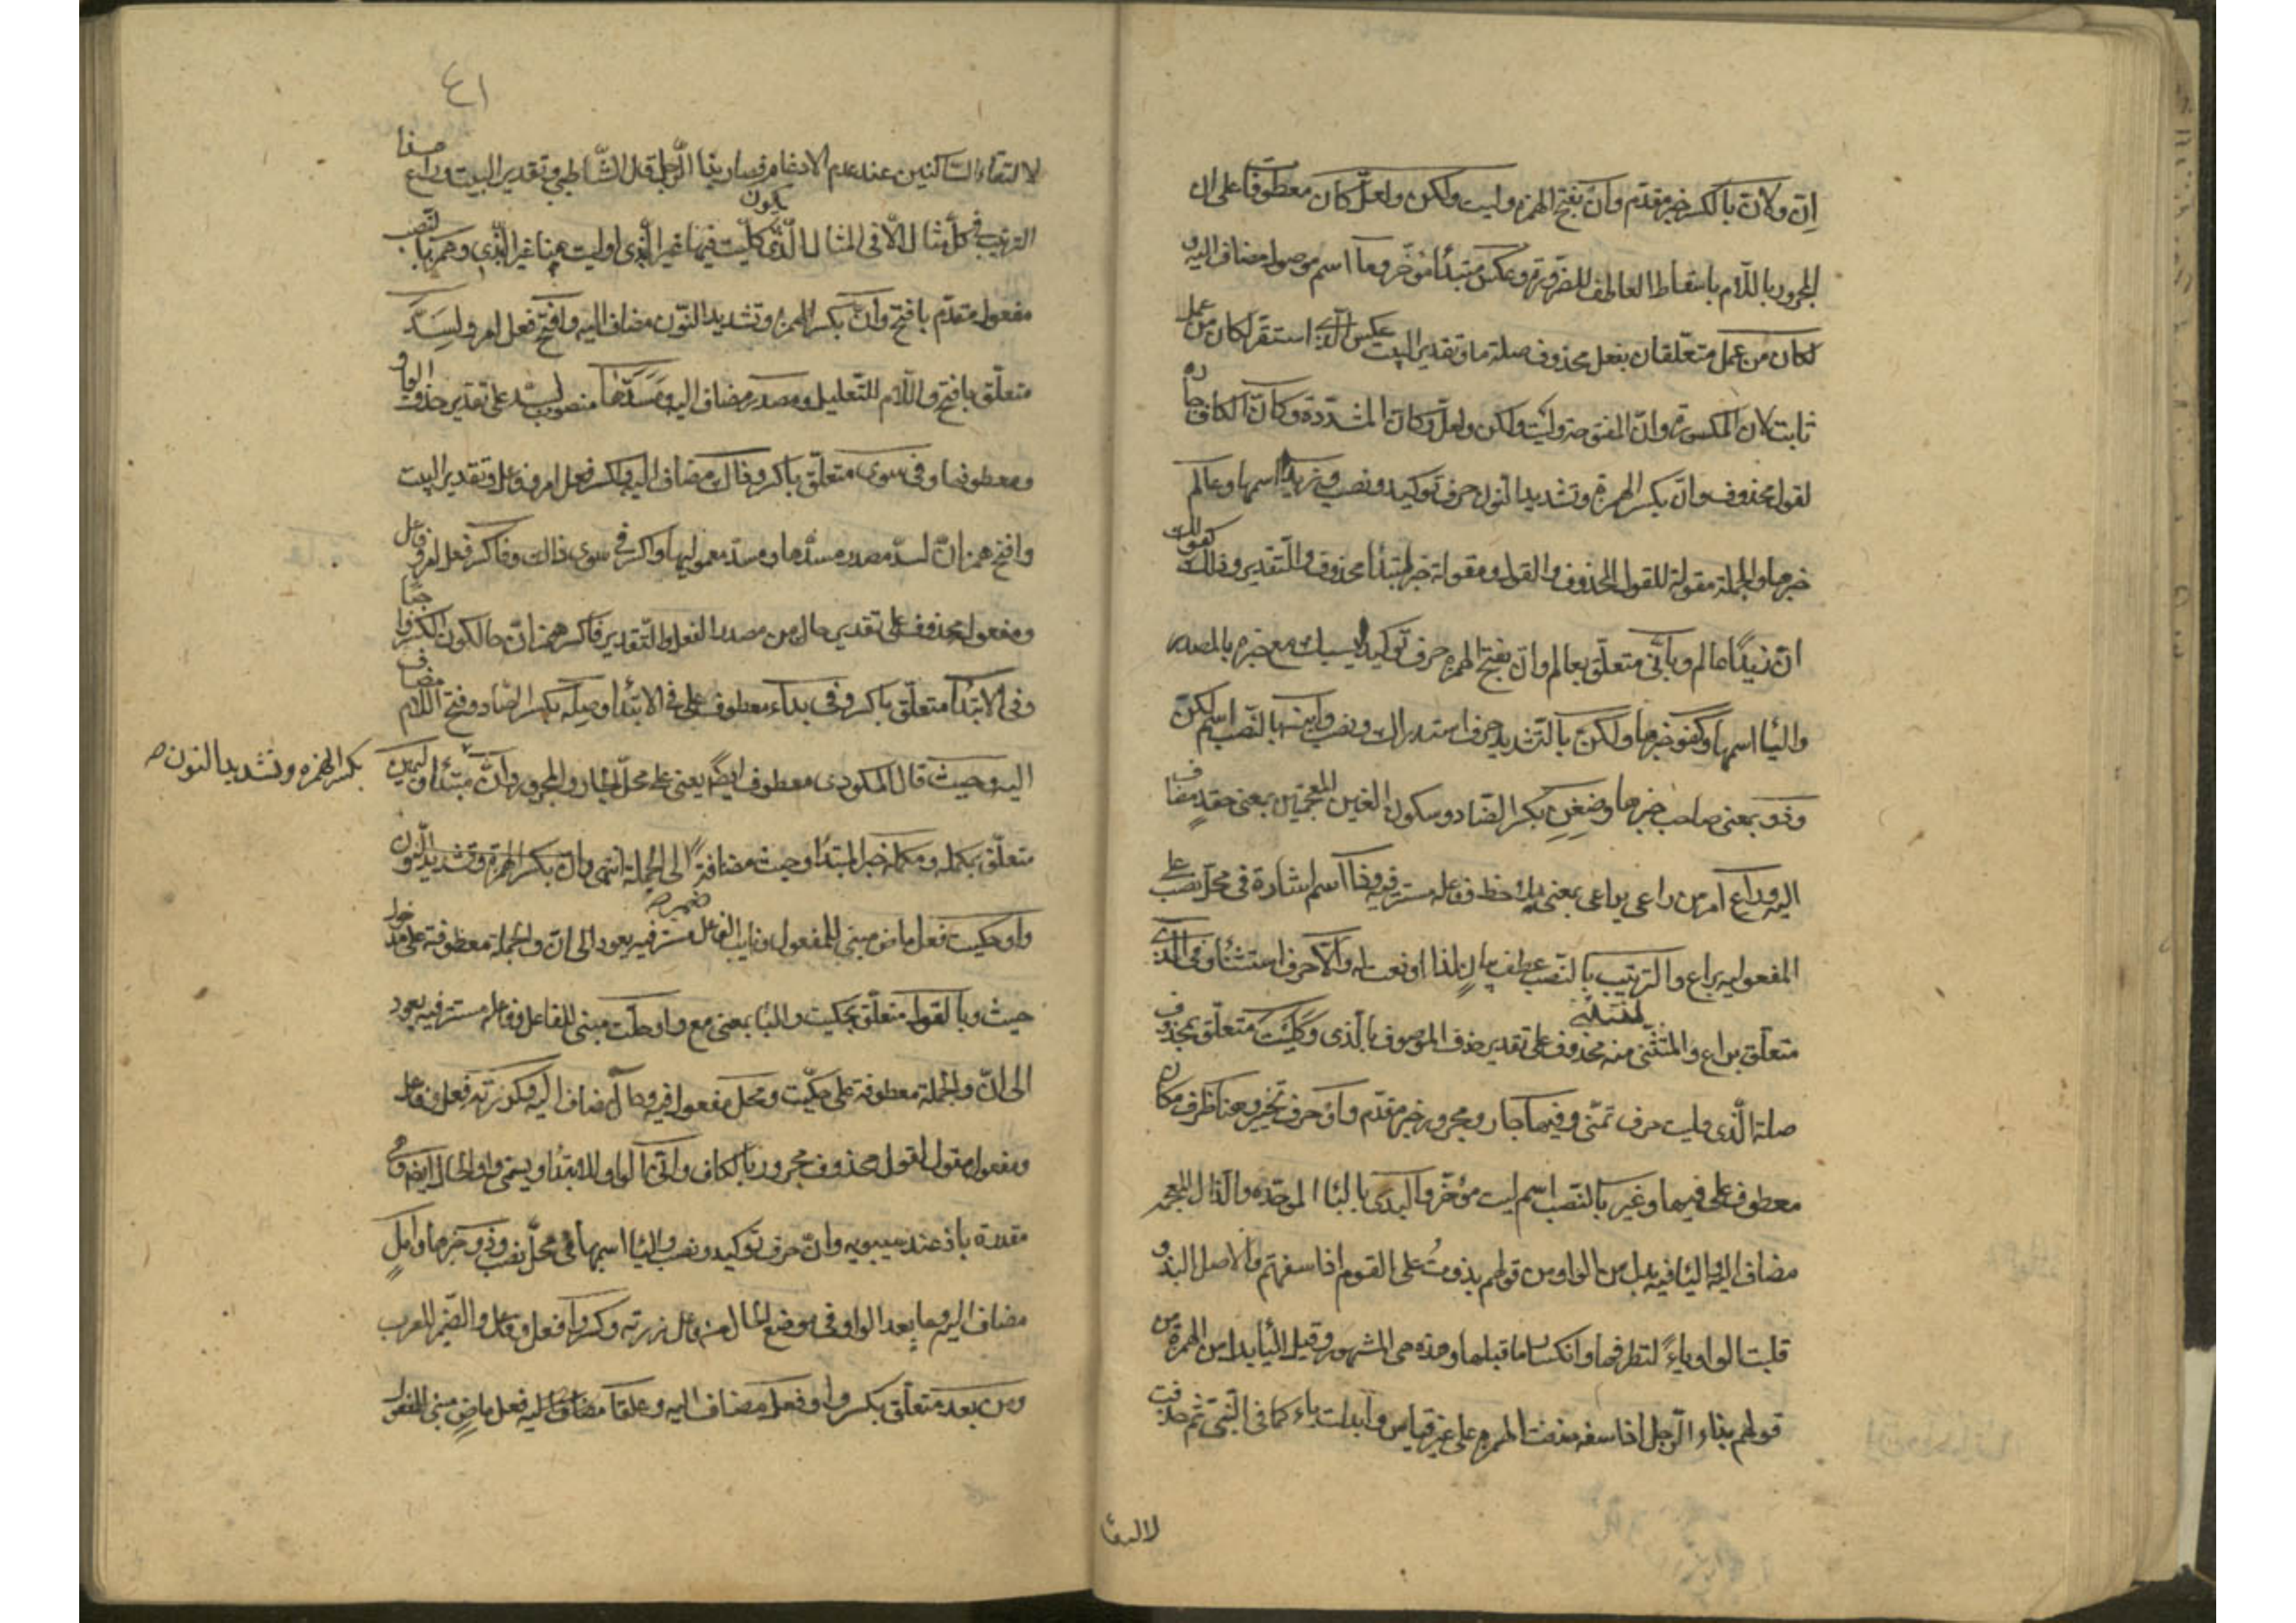 اِنّ ولانّ بالكسر خبر مقدّم وانّ بفتح الهمزة وليت ولكن ولعلّ كان معطوفات على ان
المجرور باللّام باسقاط العاطف للضرورة وعكس مبتدأ مؤخّر وما اسم موصول مضاف اليه و
لكان من عمل متعلّقان بفعل محذوف صلة ما وتقدير البيت عكس الّذي استقرّ لكان من عمل
ثابت لانّ المكسورة وانّ المفتوحة وليت ولكن ولعلّ وكانّ المشدّدة وكانّ الكاف جارّه
لقول محذوف وانّ بكسر الهمزة وتشديد النون حرف توكيد ونصب وزيدًا اسمها وعالم
خبرها والجملة مقولة للقول المحذوف والقول ومقوله خبر لمبتدأ محذوف والتّقدير وذلك كقولك
انّ زيدًا عالم وبانّي متعلّق بعالم وانّ بفتح الهمزة حرف توكيد يسبك مع خبره بالمصدر
والياء اسمها وكفو خبرها ولكنّ بالتّشديد حرف استدراك ونصب وابنه بالنّصب اسم لكنّ
وذو بمعنى صاحب خبرها وضغن بكسر الضّاد وسكون الغين المعجمتين بمعنى حقد مضاف
اليه وراع امر من راعى يراعي بمعنى لاحظ وفاعله مستتر فيه وذا اسم اشارة في محلّ نصب على
المفعوليه براع والترتيب بالنّصب عطف بيان لذا او نعت له والّا حرف استثناء وفي الّذي
متعلّق براع والمستثنى منه محذوف على تقدير حذف الموصوف بالّذي وكليت متعلّق بمحذوف
صلة الّذي وليت حرف تمنّي وفيها جار ومجرور خبر مقدّم واو حرف تخيير وهنا ظرف مكان
معطوف على فيها وغير بالنّصب اسم ليت مؤخّر والبذي بالباء الموحّدة والذّال المعجمه
مضاف اليه والياء فيه بدل من الواو من قولهم بذوتُ على القوم اذا سفهتهم والاصل البذو
قلبت الواو ياءً لتطرفها وانكسار ما قبلها وهذه هي المشهور وقيل الياء بدل من الهمزة من
قولهم بذاء الرّجل اذا سفه حذفت الهمزة على غير قياس وابدلت ياء كما في النّبي ثم حذفت
لالتقا
٤١
لالتقاء السّاكنين عند عدم الادغام فصار بذا الرّجل قال الشّاطبي وتقدير البيت وراع هذا
الترتيب في كلّ مثال الّا في المثال الّذي يكون كليت فيها غير الّذي او ليت هنا غير الّذي وهمز بالنّصب
مفعول مقدّم بافتح وانّ بكسر الهمزة وتشديد النّون مضاف اليه وافتح فعل امر ولسَدّ
متعلّق بافتح واللّام للتّعليل ومصدر مضاف اليه ومَسَدّها منصوب بسد على تقدير حذف الواو
ومعطوفها وفي سوى متعلّق باكسر وذاك مضاف اليه واكسر فعل امر وفاعل وتقدير البيت
وافتح همز انّ لسدّ مصدر مسدّها ومسدّ معموليها واكسر في سوى ذالك وفاكسر فعل امر وفاعل
ومفعوله محذوف على تقدير حال من مصدر الفعل والتّقدير فاكسر همز انّ حال كون الكسر واجبًا
وفي الابتدا متعلّق باكسر وفي بداء معطوف على في الابتدا وصله بكسر الصّاد وفتح اللّام مضاف
اليه وحيث قال المكودي معطوف ايضًا يعني على محلّ الجار والمجرور وانّ مبتدأ وليمين
بكسر الهمزه وتشديد النون صح
متعلّق بمكمله ومكمله خبر المبتدا وحيث مضافة الى الجملة انتهى وانّ بكسر الهمزة وتشديد النّون
واو حكيت فعل ماض مبني للمفعول ونايب الفاعل ضمير مستتر فيه يعود الى انّ والجملة معطوفة على مدخول
حيث وبالقول متعلّق بحكيت والباء بمعنى مع واو حلّت مبني للفاعل وفاعله مستتر فيه يعود
الى انّ والجملة معطوفة على حكيت ومحل مفعول فيه وحال مضاف اليه وكزرته فعل وفاعل
ومفعول مقول لقول محذوف مجرور بالكاف وانّي الواو للابتداء ويسمّى واو الحال ايضا وهي
مقدرة باذ عند سيبويه وانّ حرف توكيد ونصب والياء اسمها في محلّ نصب وذو خبرها وامل
مضاف اليه وما بعد الواو في موضع الحال من فاعل زرته وكسروا فعل وفاعل والضّمير للعرب
ومن بعد متعلّق بكسروا وفعل مضاف اليه وعلّقا مضاف اليه فعل ماض مبني للمفعول